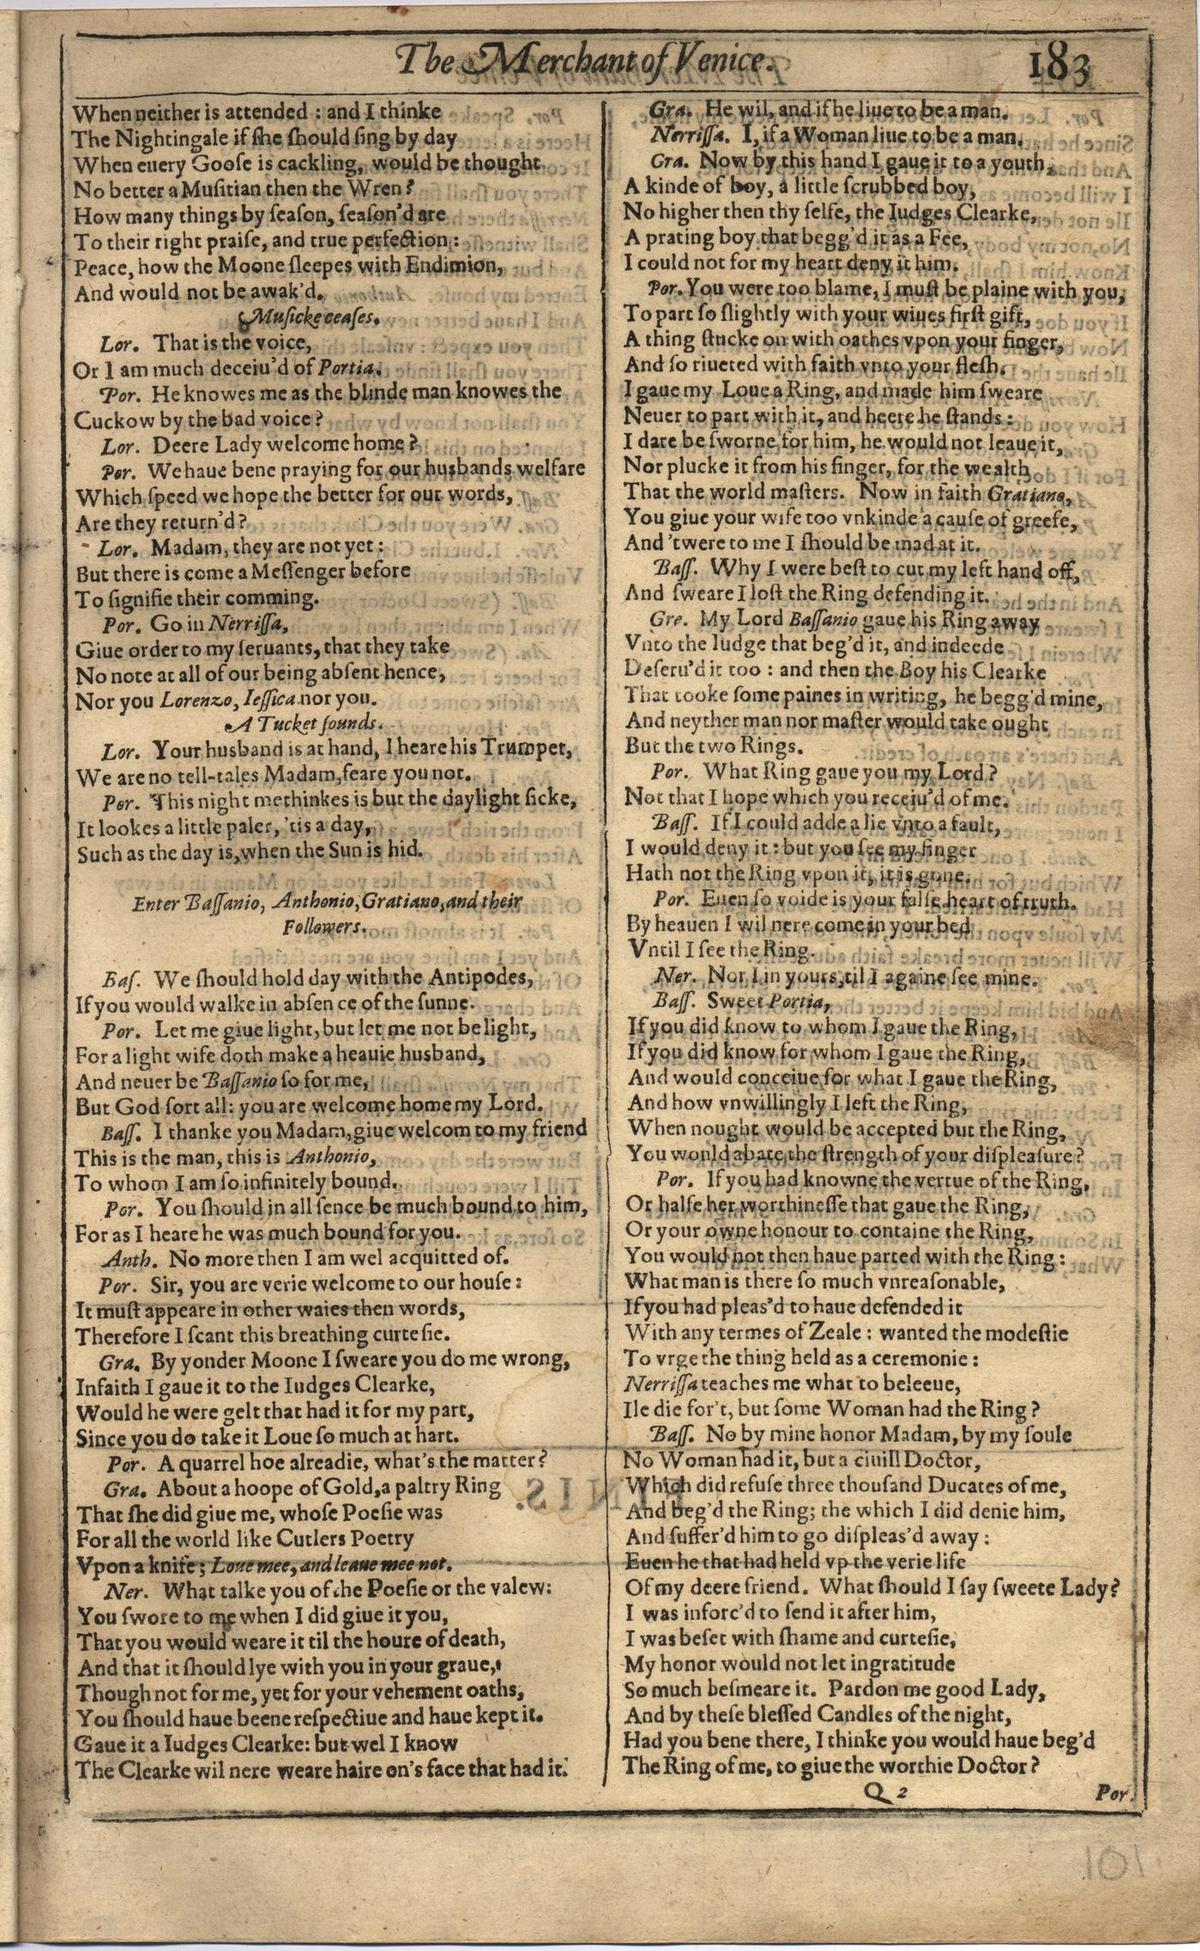 The Merchant of Venice. 183
When neither is attended : and I thinke
The Nightingale if ſhe ſhould ſing by day
When euery Gooſe is cackling, would be thought
No better a Muſitian then the Wren?
How many things by ſeaſon, ſeaſon'd are
To their right praiſe, and true perfection :
Peace, how the Moone ſleepes with Endimion,
And would not be awak'd.
Muſicke ceaſes.
Lor. That is the voice,
Or I am much deceiu'd of Portia.
Por. He knowes me as the blinde man knowes the
Cuckow by the bad voice?
Lor. Deere Lady welcome home?
Por. We haue bene praying for our husbands welfare
Which ſpeed we hope the better for our words,
Are they return'd?
Lor. Madam, they are not yet :
But there is come a Meſſenger before
To ſignifie their comming.
Por. Go in Nerriſſa,
Giue order to my ſeruants, that they take
No note at all of our being abſent hence,
Nor you Lorenzo, Ieſſica nor you.
A Tucket ſounds.
Lor. Your husband is at hand, I heare his Trumpet,
We are no tell-tales Madam, feare you not.
Por. This night methinkes is but the daylight ſicke,
It lookes a little paler, 'tis a day,
Such as the day is, when the Sun is hid.
Enter Baſſanio, Anthonio, Gratiano, and their
Followers.
Baſ. We ſhould hold day with the Antipodes,
If you would walke in abſence of the ſunne.
Por. Let me giue light, but let me not be light,
For a light wife doth make a heauie husband,
And neuer be Baſſanio ſo for me,
But God ſort all: you are welcome home my Lord.
Baſſ. I thanke you Madam, giue welcom to my friend
This is the man, this is Anthonio,
To whom I am ſo infinitely bound.
Por. You ſhould in all ſence be much bound to him,
For as I heare he was much bound for you.
Anth. No more then I am wel acquitted of.
Por. Sir, you are verie welcome to our houſe :
It muſt appeare in other waies then words,
Therefore I ſcant this breathing curteſie.
Gra. By yonder Moone I ſweare you do me wrong,
Infaith I gaue it to the Iudges Clearke,
Would he were gelt that had it for my part,
Since you do take it Loue ſo much at hart.
Por. A quarrel hoe alreadie, what's the matter?
Gra. About a hoope of Gold, a paltry Ring
That ſhe did giue me, whoſe Poeſie was
For all the world like Cutlers Poetry
Vpon a knife ; Loue mee, and leaue mee not.
Ner. What talke you of the Poeſie or the valew:
You ſwore to me when I did giue it you,
That you would weare it til the houre of death,
And that it ſhould lye with you in your graue,
Though not for me, yet for your vehement oaths,
You ſhould haue beene reſpectiue and haue kept it.
Gaue it a Iudges Clearke: but wel I know
The Clearke wil nere weare haire on's face that had it.
Gra. He wil, and if he liue to be a man.
Nerriſſa. I, if a Woman liue to be a man.
Gra. Now by this hand I gaue it to a youth,
A kinde of boy, a little ſcrubbed boy,
No higher then thy ſelfe, the Iudges Clearke,
A prating boy that begg'd it as a Fee,
I could not for my heart deny it him.
Por. You were too blame, I muſt be plaine with you,
To part ſo ſlightly with your wiues firſt gift,
A thing ſtucke on with oathes vpon your finger,
And ſo riueted with faith vnto your fleſh.
I gaue my Loue a Ring, and made him ſweare
Neuer to part with it, and heere he ſtands :
I dare be ſworne for him, he would not leaue it,
Nor plucke it from his finger, for the wealth
That the world maſters. Now in faith Gratiano,
You giue your wife too vnkinde a cauſe of greefe,
And 'twere to me I ſhould be mad at it.
Baſſ. Why I were beſt to cut my left hand off,
And ſweare I loſt the Ring defending it.
Gre. My Lord Baſſanio gaue his Ring away
Vnto the Iudge that beg'd it, and indeede
Deſeru'd it too : and then the Boy his Clearke
That tooke ſome paines in writing, he begg'd mine,
And neyther man nor maſter would take ought
But the two Rings.
Por. What Ring gaue you my Lord?
Not that I hope which you receiu'd of me.
Baſſ. If I could adde a lie vnto a fault,
I would deny it : but you ſee my finger
Hath not the Ring vpon it, it is gone.
Por. Euen ſo voide is your falſe heart of truth.
By heauen I wil nere come in your bed
Vntil I ſee the Ring.
Ner. Nor I in yours, til I againe ſee mine.
Baſſ. Sweet Portia,
If you did know to whom I gaue the Ring,
If you did know for whom I gaue the Ring,
And would conceiue for what I gaue the Ring,
And how vnwillingly I left the Ring,
When nought would be accepted but the Ring,
You would abate the ſtrength of your diſpleaſure?
Por. If you had knowne the vertue of the Ring,
Or halfe her worthineſſe that gaue the Ring,
Or your owne honour to containe the Ring,
You would not then haue parted with the Ring :
What man is there ſo much vnreaſonable,
If you had pleas'd to haue defended it
With any termes of Zeale : wanted the modeſtie
To vrge the thing held as a ceremonie :
Nerriſſa teaches me what to beleeue,
Ile die for't, but ſome Woman had the Ring?
Baſſ. No by mine honor Madam, by my ſoule
No Woman had it, but a ciuill Doctor,
Which did refuſe three thouſand Ducates of me,
And beg'd the Ring; the which I did denie him,
And ſuffer'd him to go diſpleas'd away :
Euen he that had held vp the verie life
Of my deere friend. What ſhould I ſay ſweete Lady?
I was inforc'd to ſend it after him,
I was beſet with ſhame and curteſie,
My honor would not let ingratitude
So much beſmeare it. Pardon me good Lady,
And by theſe bleſſed Candles of the night,
Had you bene there, I thinke you would haue beg'd
The Ring of me, to giue the worthie Doctor?
Q 2 Por.
101